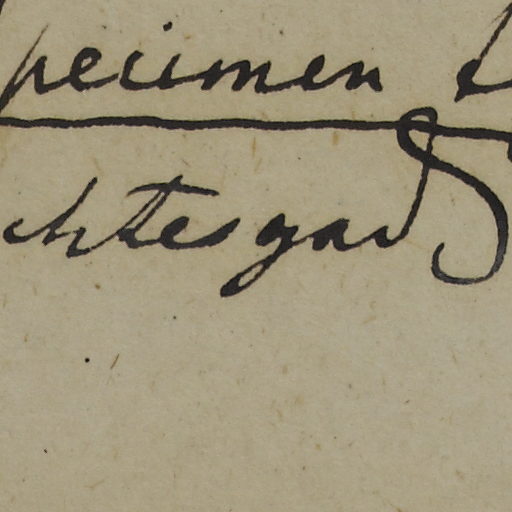 pecimen
chtesgad